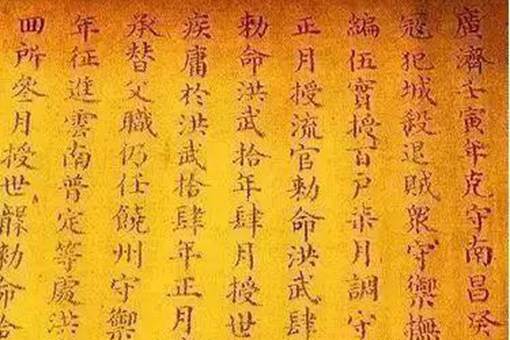 廣濟壬寅年克守南昌癸
寇犯城殺退賊衆守禦撫
編伍實授百戸柒月調守
正月授流官勅命洪武肆
勅命洪武拾年肆月授世
疾庸於洪武拾肆年正月
承替父職仍任饒州守禦
年征進雲南普定等處洪
回所叅月授世襲勅命拾